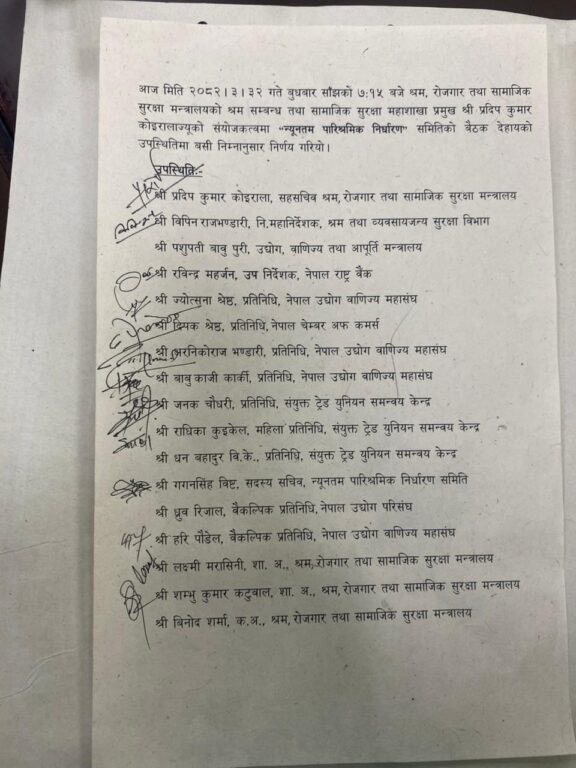 आज मिति २०८२।३।३२ गते बुधबार साँझको ७:१५ बजे श्रम, रोजगार तथा सामाजिक
सुरक्षा मन्त्रालयको श्रम सम्बन्ध तथा सामाजिक सुरक्षा महाशाखा प्रमुख श्री प्रदिप कुमार
कोइरालाज्यूको संयोजकत्वमा "न्यूनतम पारिश्रमिक निर्धारण" समितिको बैठक देहायको
उपस्थितिमा बसी निम्नानुसार निर्णय गरियो।
उपस्थितिः-
श्री प्रदिप कुमार कोइराला, सहसचिव श्रम, रोजगार तथा सामाजिक सुरक्षा मन्त्रालय
श्री विपिन राजभण्डारी, नि.महानिर्देशक, श्रम तथा व्यवसायजन्य सुरक्षा विभाग
श्री पशुपती बाबु पुरी, उद्योग, वाणिज्य तथा आपूर्ति मन्त्रालय
श्री रविन्द्र महर्जन, उप निर्देशक, नेपाल राष्ट्र बैंक
श्री ज्योत्सुना श्रेष्ठ, प्रतिनिधि, नेपाल उद्योग वाणिज्य महासंघ
श्री दिपक श्रेष्ठ, प्रतिनिधि, नेपाल चेम्बर अफ कमर्स
श्री अरनिकोराज भण्डारी, प्रतिनिधि, नेपाल उद्योग वाणिज्य महासंघ
श्री बाबु काजी कार्की, प्रतिनिधि, नेपाल उद्योग वाणिज्य महासंघ
श्री जनक चौधरी, प्रतिनिधि, संयुक्त ट्रेड युनियन समन्वय केन्द्र
श्री राधिका कुइकेल, महिला प्रतिनिधि, संयुक्त ट्रेड युनियन समन्वय केन्द्र
श्री धन बहादुर बि.के., प्रतिनिधि, संयुक्त ट्रेड युनियन समन्वय केन्द्र
श्री गगनसिंह विष्ट, सदस्य सचिव, न्यूनतम पारिश्रमिक निर्धारण समिति
श्री ध्रुव रिजाल, बैकल्पिक प्रतिनिधि, नेपाल उद्योग परिसंघ
श्री हरि पौडेल, बैकल्पिक प्रतिनिधि, नेपाल उद्योग वाणिज्य महासंघ
श्री लक्ष्मी मरासिनी, शा. अ., श्रम, रोजगार तथा सामाजिक सुरक्षा मन्त्रालय
श्री शम्भु कुमार कटुवाल, शा. अ., श्रम, रोजगार तथा सामाजिक सुरक्षा मन्त्रालय
श्री बिनोद शर्मा, क.अ., श्रम, रोजगार तथा सामाजिक सुरक्षा मन्त्रालय